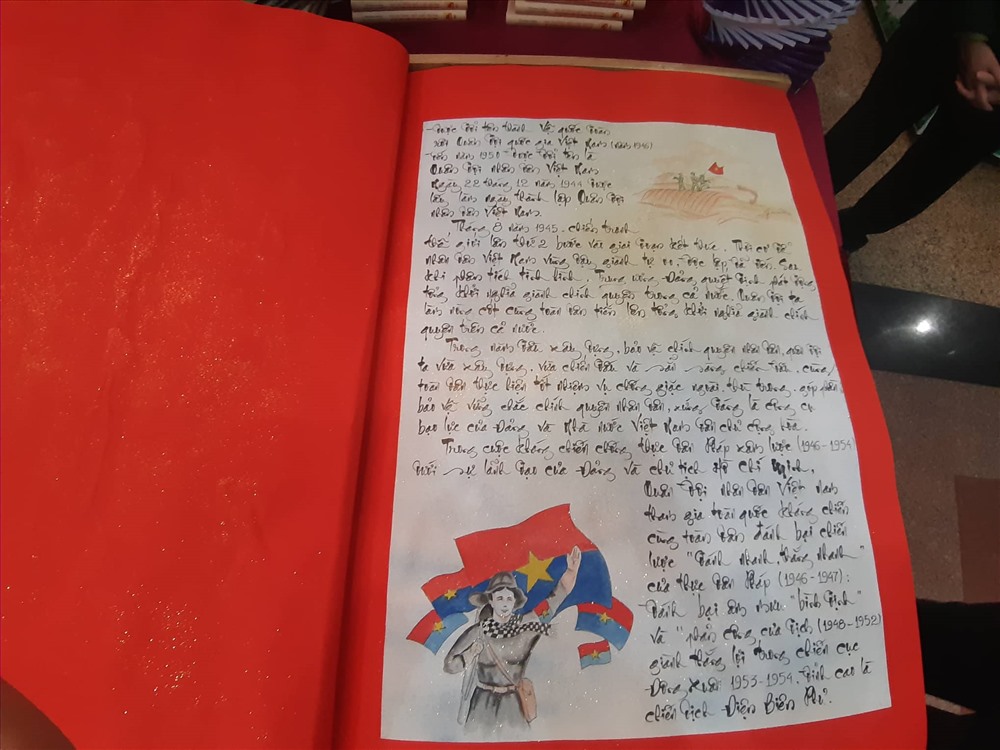 - Được đổi tên thành Vệ quốc đoàn
rồi Quân đội quốc gia Việt Nam (năm 1946)
- Đến năm 1950 được đổi tên là
Quân đội nhân dân Việt Nam
Ngày 22 tháng 12 năm 1944 được
lấy làm ngày thành lập Quân đội
nhân dân Việt Nam.
Tháng 8 năm 1945, chiến tranh
thế giới lần thứ 2 bước vào giai đoạn kết thúc. Thời cơ để
nhân dân Việt Nam vùng dậy giành tự do, độc lập đã đến. Sau
khi phân tích tình hình, Trung ương Đảng quyết định phát động
tổng khởi nghĩa giành chính quyền trong cả nước. Quân đội ta
làm nòng cốt cùng toàn dân tiến lên tổng khởi nghĩa giành chính
quyền trên cả nước.
Trong năm đầu xây dựng, bảo vệ chính quyền nhân dân, quân đội
ta vừa xây dựng, vừa chiến đấu và sẵn sàng chiến đấu, cùng
toàn dân thực hiện tốt nhiệm vụ chống giặc ngoài, thù trong, góp phần
bảo vệ vững chắc chính quyền nhân dân, xứng đáng là công cụ
bạo lực của Đảng và Nhà nước Việt Nam dân chủ cộng hòa.
Trong cuộc kháng chiến chống thực dân Pháp xâm lược (1946-1954)
dưới sự lãnh đạo của Đảng và chủ tịch Hồ Chí Minh,
Quân đội nhân dân Việt Nam
tham gia toàn quốc kháng chiến
cùng toàn dân đánh bại chiến
lược "đánh nhanh, thắng nhanh"
của thực dân Pháp (1946-1947);
Đánh bại âm mưu "bình định"
và "phản công của địch (1948-1952)
giành thắng lợi trong chiến cục
Đông Xuân 1953-1954. Đỉnh cao là
chiến dịch Điện Biên Phủ.